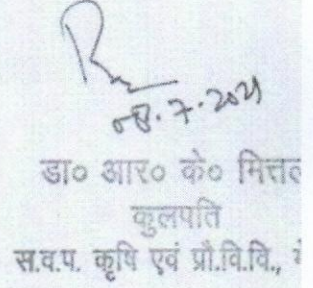 08.7.2021
डा० आर० के० मित्तल
कुलपति
स.व.प. कृषि एवं प्रौ.वि.वि.,